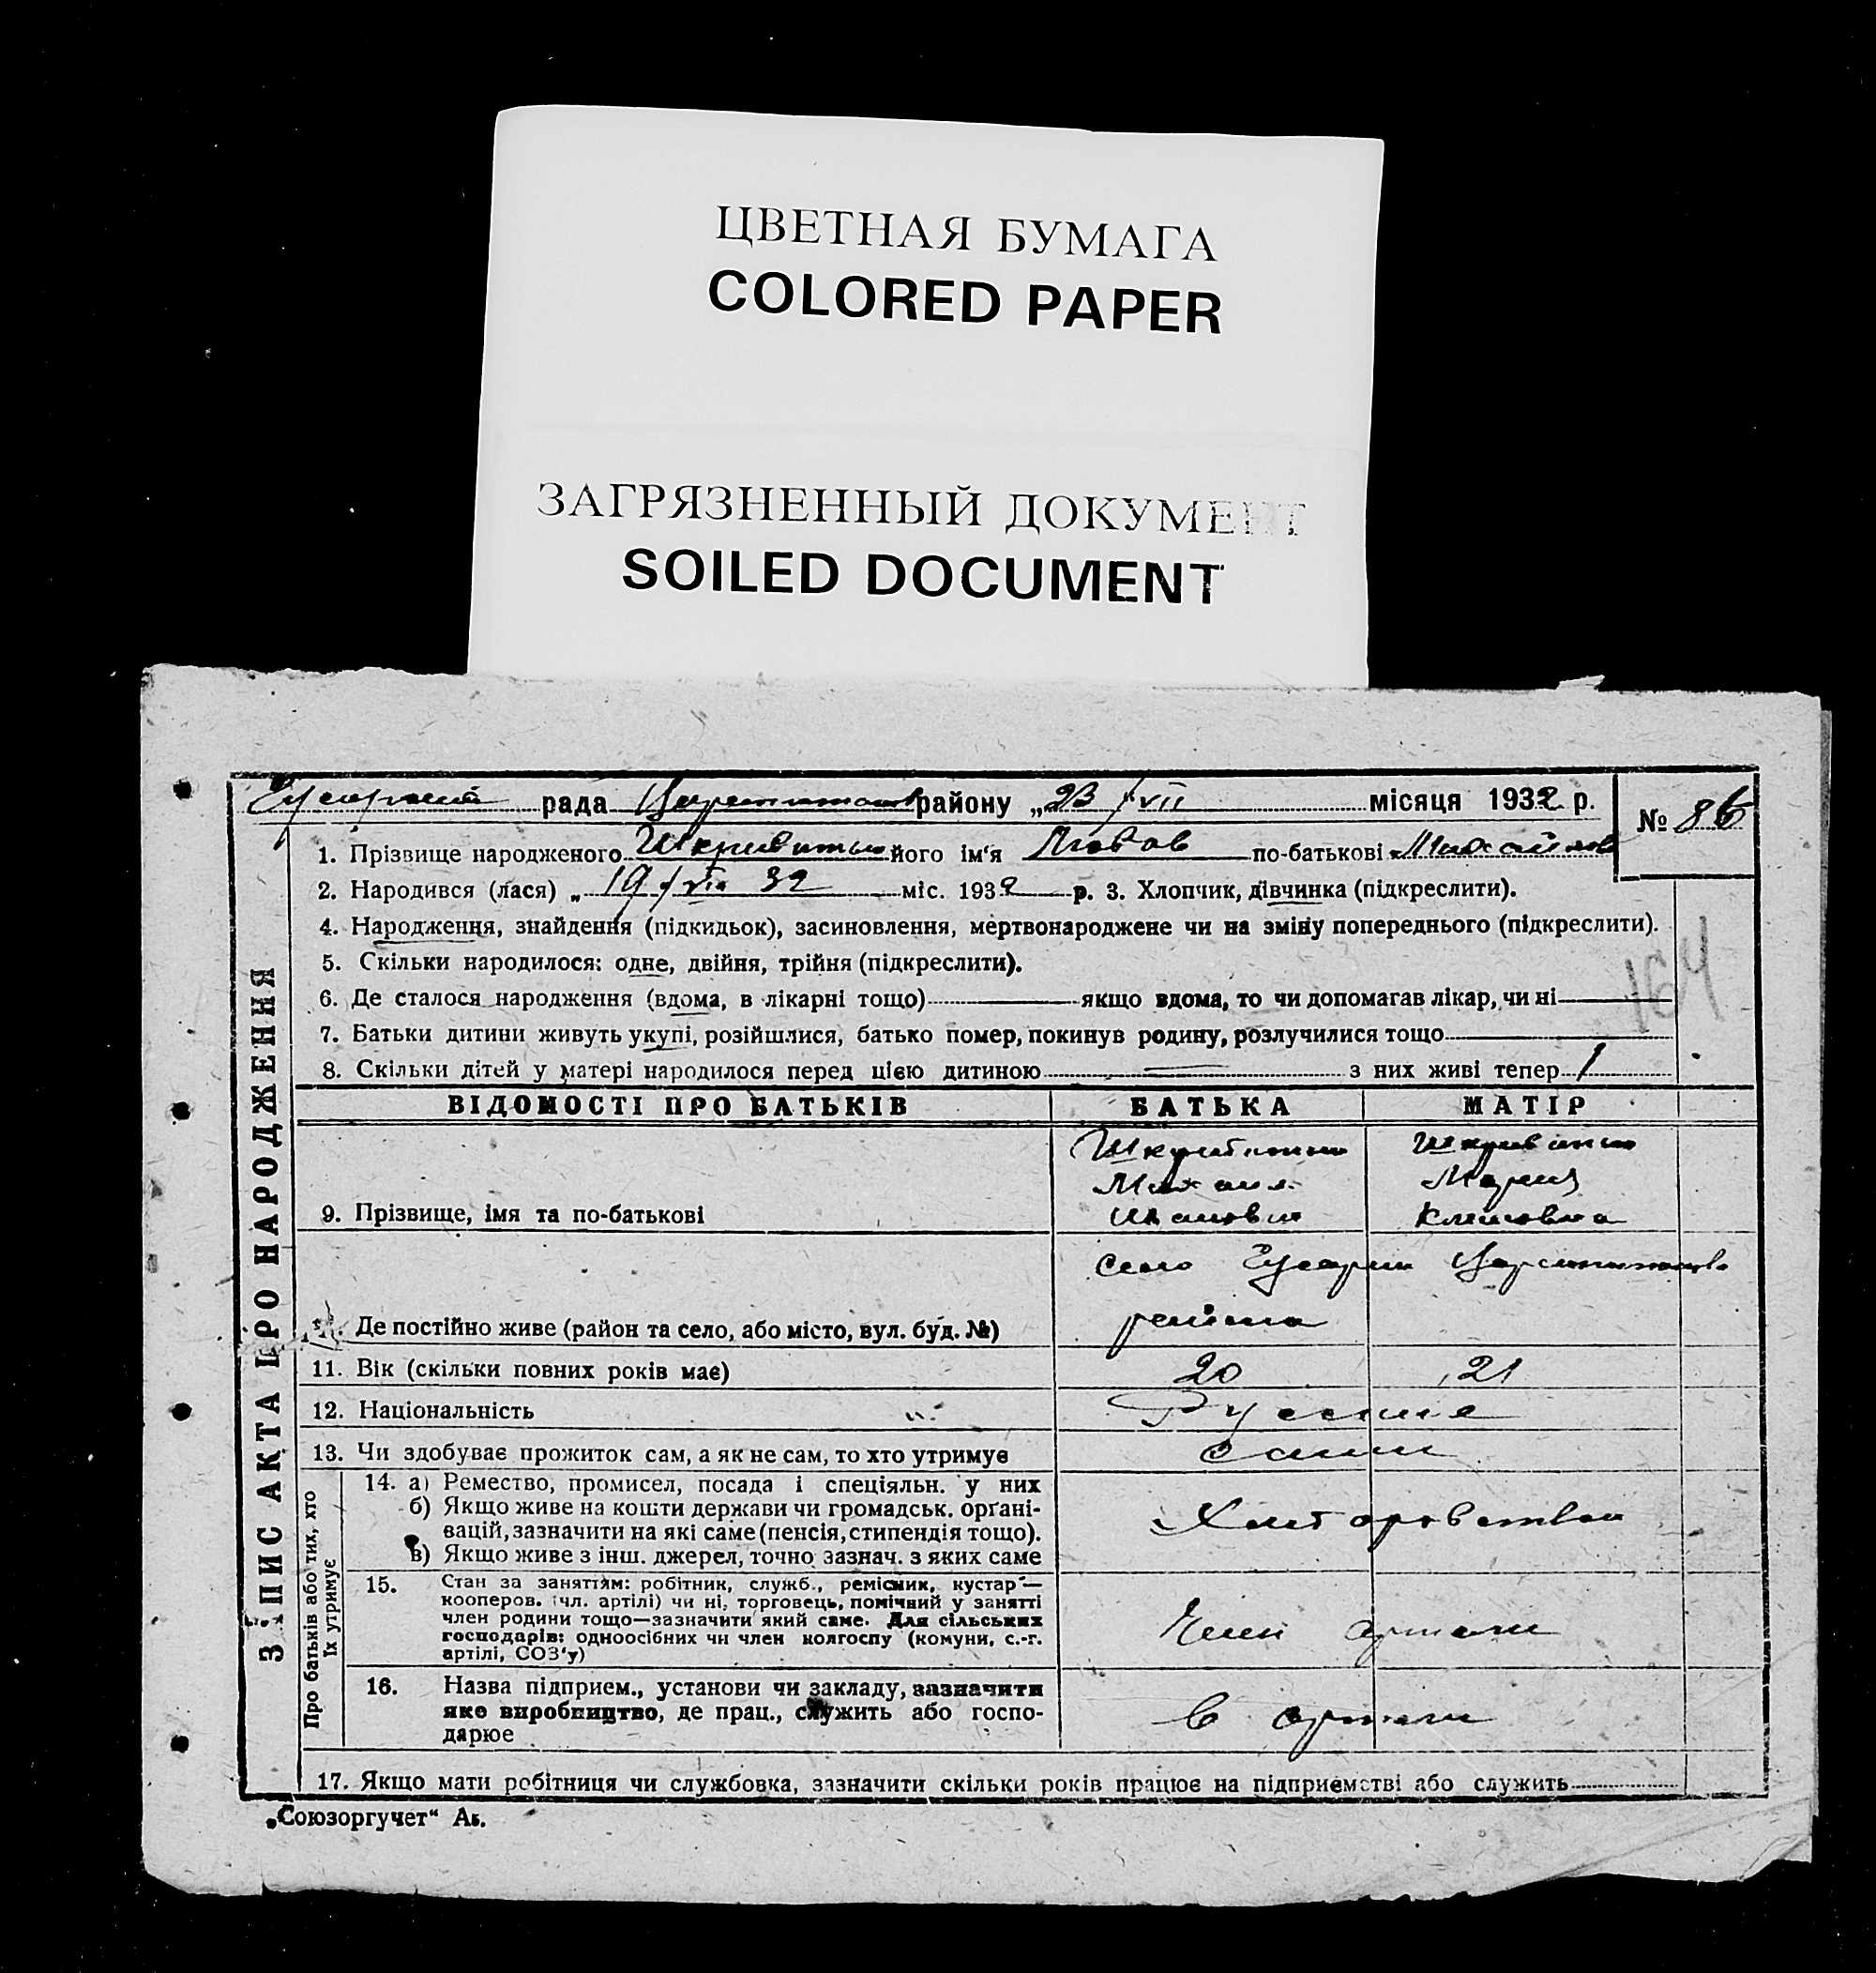 ЦВЕТНАЯ БУМАГА
COLORED PAPER
ЗАГРЯЗНЕННЫЙ ДОКУМЕНТ
SOILED DOCUMENT
рада району „23/VII місяця 1932 р.
№ 86
1. Прізвище народженого його ім'я Любов по-батькові Михайлов
2. Народився (лася) „19/VII 32 міс. 1932 р. 3. Хлопчик, дівчинка (підкреслити).
4. Народження, знайдення (підкидьок), засиновлення, мертвонароджене чи на зміну попереднього (підкреслити).
5. Скільки народилося: одне, двійня, трійня (підкреслити).
6. Де сталося народження (вдома, в лікарні тощо) — якщо вдома, то чи допомагав лікар, чи ні —
164
7. Батьки дитини живуть укупі, розійшлися, батько помер, покинув родину, розлучилися тощо
8. Скільки дітей у матері народилося перед цією дитиною — з них живі тепер 1
ЗАПИС АКТА ПРО НАРОДЖЕННЯ
ВІДОМОСТІ ПРО БАТЬКІВ БАТЬКА МАТІР
9. Прізвище, імя та по-батькові
Михаил Мария
Иванович
Де постійно живе (район та село, або місто, вул. буд. №)
Село
11. Вік (скільки повних років має) 20 21
12. Національність Руские
13. Чи здобуває прожиток сам, а як не сам, то хто утримує сами
Про батьків або тих, хто їх утримує
14. а) Ремество, промисел, посада і спеціяльн. у них
б) Якщо живе на кошти держави чи громадськ. органі-
вацій, зазначити на які саме (пенсія, стипендія тощо).
в) Якщо живе з інш. джерел, точно зазнач. з яких саме
Хлеборобством
15. Стан за заняттям: робітник, служб., ремісник, кустар—
кооперов. (чл. артілі) чи ні, торговець, помічний у занятті
член родини тощо—зазначити який саме. Для сільських
господарів: одноосібних чи член колгоспу (комуни, с.-г.
артілі, СОЗ'у)
Член артели
16. Назва підприєм., установи чи закладу, зазначити
яке виробництво, де прац., служить або госпо-
дарює
в артели
17. Якщо мати робітниця чи службовка, зазначити скільки років працює на підприємстві або служить
„Союзоргучет“